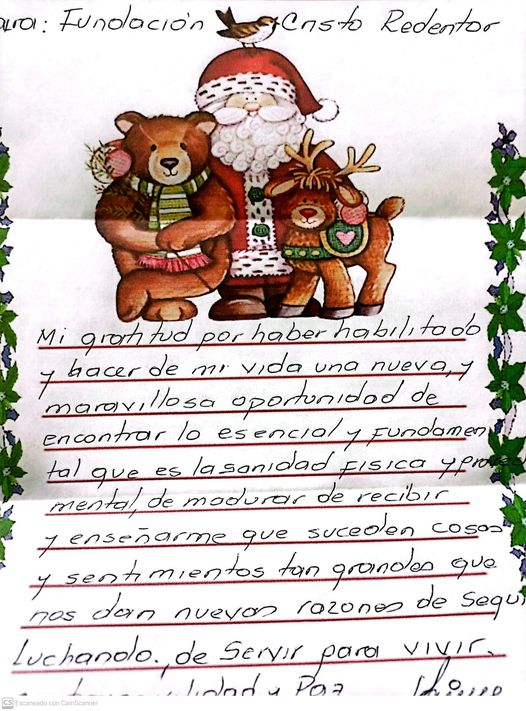 ara: Fundación Cristo Redentor
Mi gratitud por haber habilitado
y hacer de mi vida una nueva, y
maravillosa oportunidad de
encontrar lo esencial y Fundamen
tal que es la sanidad Física y
mental, de madurar de recibir
y enseñarme que suceden cosas
y sentimientos tan grandes que
nos dan nuevas razones de segui
Luchando., de Servir para vivir.
y Paz
CS Escaneado con CamScanner